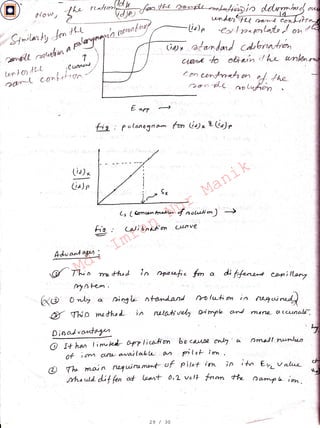 Now, the ration (id)x/(id)p for the sample solution is determined
under the same condition
Similarly for the
(id)p
extrapolated on
sample solution a polarogram
(id)x
standard calibration
under the
curve to obtain the unknown
same condition
concentration of the
sample solution.
E app →
fig : polarogram for (id)x & (id)p
(id)x
(id)p
Cx
Cs (concentration of solution) →
fig : Calibration curve
Md. Imran Nur Manik
Advantages :
This method is specific for a different capillary
system.
Only a single standard solution is required
This method is relatively simple and more accurate.
Disadvantages
① It has limited application because only a small number
of ions are available as pilot ion.
② The main requirement of pilot ion is its E½ value
should differ at least 0.2 volt from the sample ion.
29 / 30